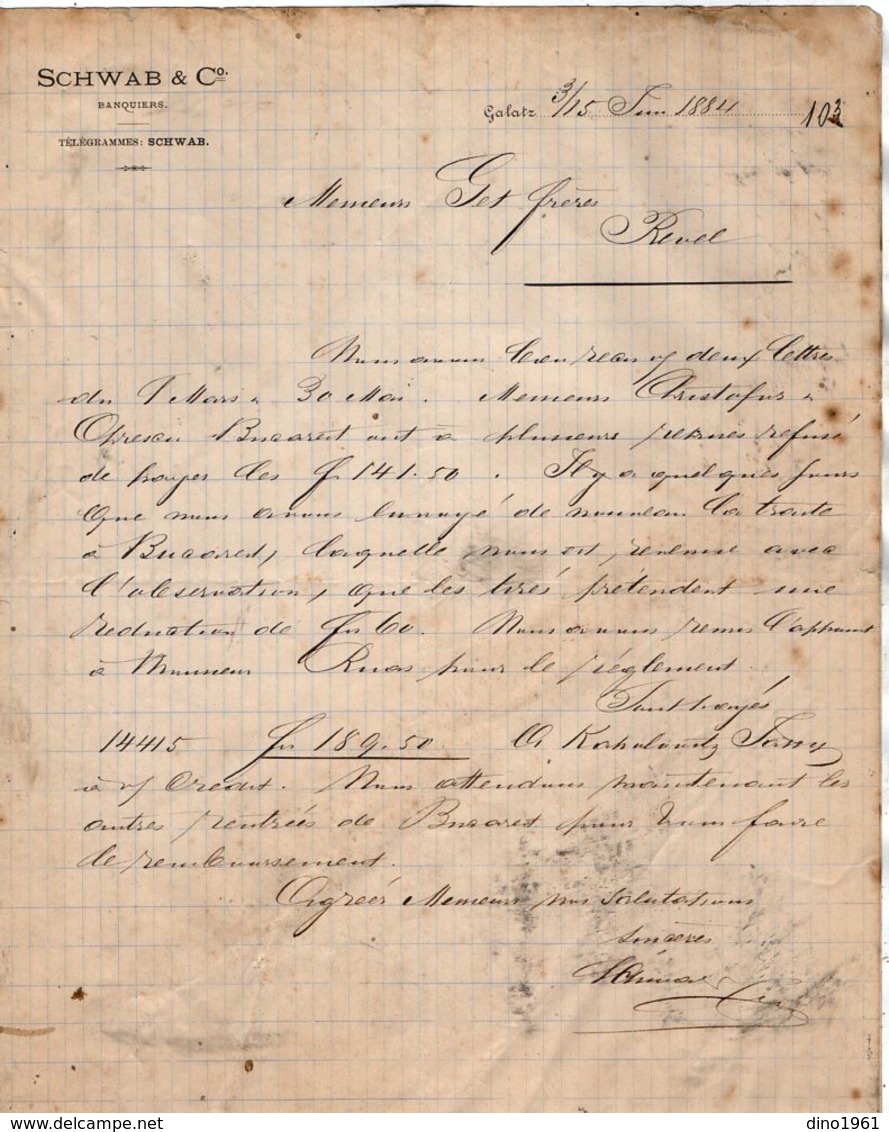 SCHWAB & Co.
BANQUIERS.
TÉLÉGRAMMES: SCHWAB.
Galatz 3/15 Juin 1884
103
Messieurs Get frères
Revel
Nous avons bien reçu v/ deux lettres
du Mars & 30 Mai. Messieurs Christofor &
Oprescu Bucarest ont à plusieurs reprises refusé
de payer les fs 141.50. Il y a quelques jours
que nous avons envoyé de nouveau la traite
à Bucarest, laquelle nous est revenue avec
l'observation, que les tirés prétendent une
reduction de fs 60. Nous avons remis l'appoint
à Monsieur Ruas pour le règlement.
Sont payés
14415 fs 189.50 Jassy
à v/ Credit. Nous attendons maintenant les
autres rentrées de Bucarest pour vous faire
le remboursement.
Agréer Messieurs nos salutations
sincères
Schwab
dino1961